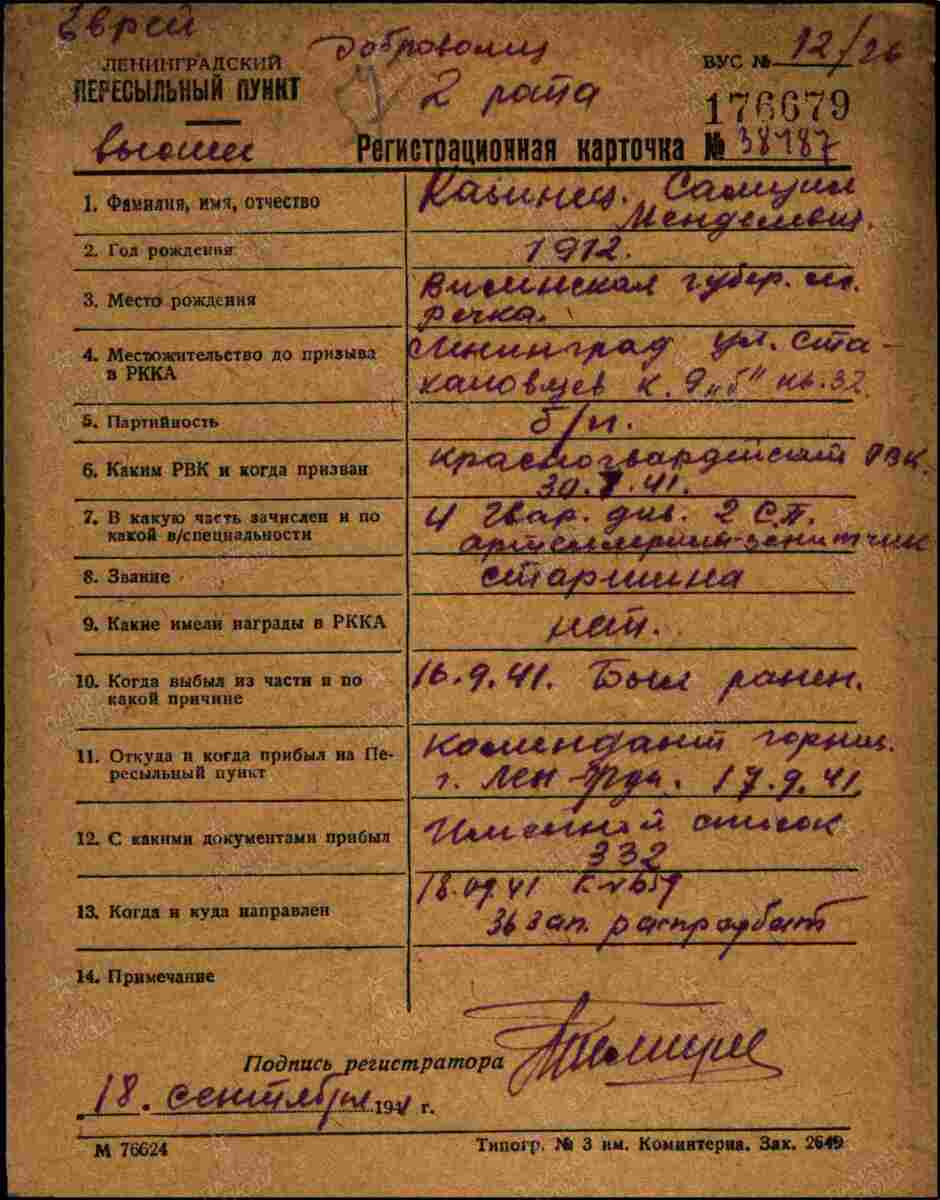 Еврей
Доброволец
ВУС № 12/26
ЛЕНИНГРАДСКИЙ
ПЕРЕСЫЛЬНЫЙ ПУНКТ
2 рота
176679
высшее
Регистрационная карточка № 38187
1. Фамилия, имя, отчество
Самуил
Менделевич.
2. Год рождения
1912.
3. Место рождения
Виленская губер. м.
Речка.
4. Местожительство до призыва
в РККА
Ленинград ул. Ста-
хановцев к. 9 „б" кв. 32
5. Партийность
б/п.
6. Каким РВК и когда призван
Красногвардейский РВК.
41.
7. В какую часть зачислен и по
какой в/специальности
4 Гвар. див. 2 С.П.
артиллерист-зенитчик
8. Звание
старшина
9. Какие имели награды в РККА
нет.
10. Когда выбыл из части и по
какой причине
16.9.41. Был ранен.
11. Откуда и когда прибыл на Пе-
ресыльный пункт
Комендант
г. 17.9.41
12. С какими документами прибыл
Именной список
332
13. Когда и куда направлен
18.09.41
36 зап.
14. Примечание
Подпись регистратора
18. сентября 1941 г.
М 76624
Типогр. № 3 им. Коминтерна. Зак. 2649